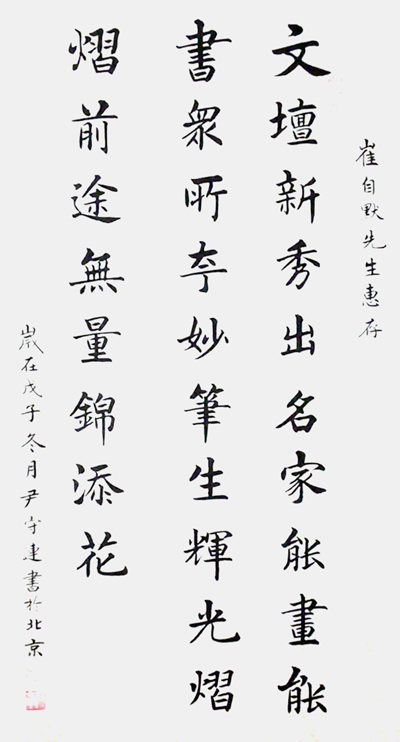 崔自默先生惠存
文壇新秀出名家能畫能
書衆所夸妙筆生輝光熠
熠前途無量錦添花
歲在戊子冬月尹守建書於北京